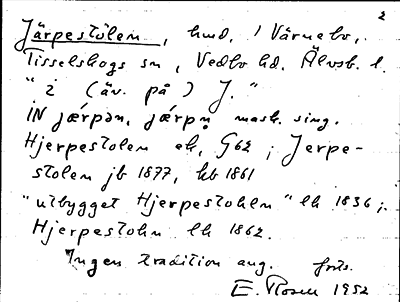 2
Järpestolen, hmd, / Värnebo,
Tisselskogs sn, Vedbo hd. Älvsb. l.
"i (äv. på) J."
IN jærpən, jærpn̥ mask. sing.
Hjerpestolen ek, G62; Jerpe-
stolen jb 1877, kb 1861
"utbygget Hjerpestohlen" lh 1836;
Hjerpestohn lh 1862.
Ingen tradition ang. forts.
E. Rosen 1952